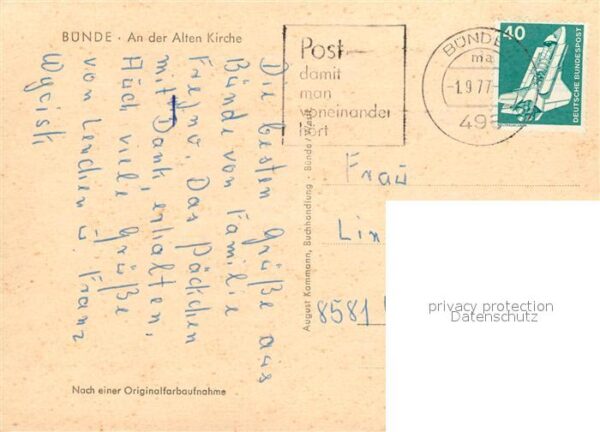 BÜNDE · An der Alten Kirche
Die besten Grüße aus
Bünde von Familie
Das Päckchen
mit Dank erhalten,
Auch viele Grüße
von Lenchen u. Franz
Nach einer Originalfarbaufnahme
August Kammann, Buchhandlung · Bünde/Westf.
Post-
damit
man
voneinander
hört
BÜNDE
ma
-1.9.77-
498
40
DEUTSCHE BUNDESPOST
Frau
Lin
8581
privacy protection
Datenschutz